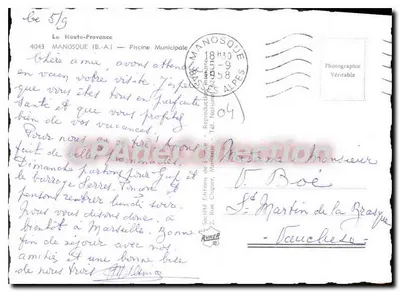 Le 5/9
La Haute-Provence
4043 MANOSQUE (B.-A.) - Piscine Municipale
Chère amie, avons attendu
en vain, votre visite. J'espère
que vous êtes tous en parfaite
santé et que vous profitez
bien de vos vacances.
Pour nous avons
fait de belles promenades.
Dimanche partons pour Gap et
le barrage Serre-Ponçon et
pensons rentrer lundi soir.
Nous vous disons donc à
bientôt à Marseille. Bonne
fin de séjour avec nos
amitiés et une bonne bise
de nous tous
MANOSQUE
18H30
5-9
1958
BSES ALPES
04
Photographie
Véritable
APdeCollection
Madame Monsieur
V. Boé
St Martin de la Brasque
Vaucluse